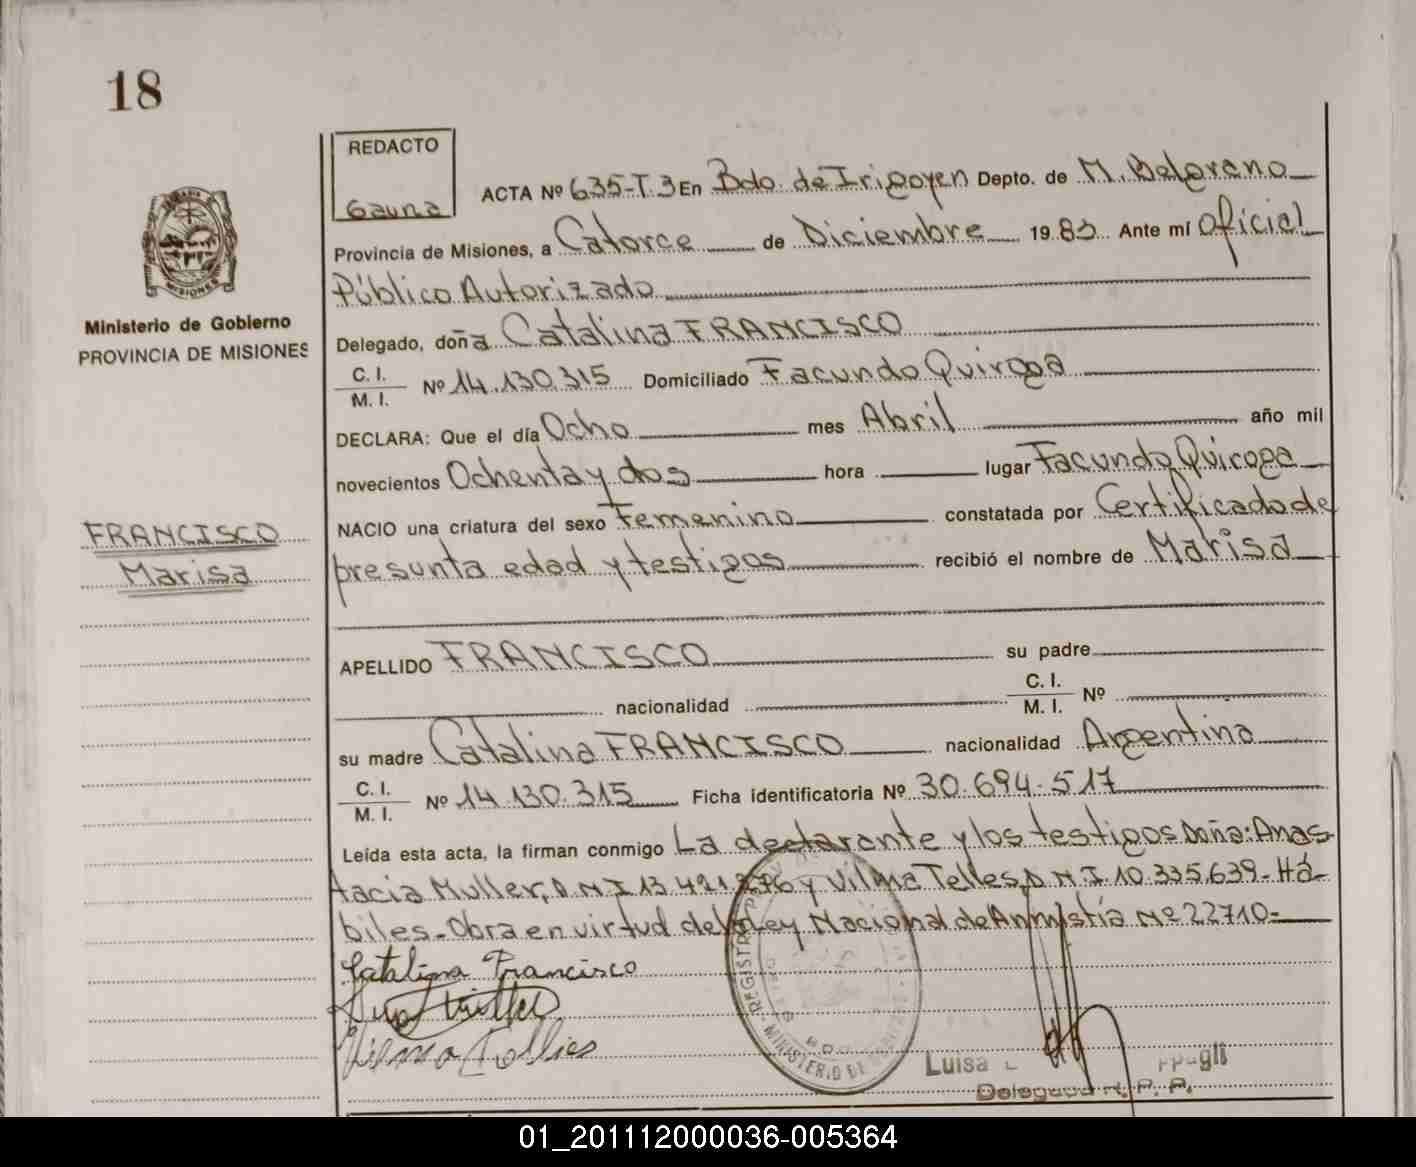 18
REDACTO
Gauna
ACTA Nº 635-T.3 En Bdo. de Irigoyen Depto. de M. Belgrano
Provincia de Misiones, a Catorce de Diciembre 1983 Ante mí Oficial
Público Autorizado
Delegado, doña Catalina FRANCISCO
C. I.
M. I. Nº 14.130.315 Domiciliado Facundo Quiroga
DECLARA: Que el día Ocho mes Abril año mil
novecientos Ochenta y dos hora lugar Facundo Quiroga
NACIO una criatura del sexo Femenino constatada por Certificado de
presunta edad y testigos recibió el nombre de Marisa
APELLIDO FRANCISCO su padre
nacionalidad C. I.
M. I. Nº
su madre Catalina FRANCISCO nacionalidad Argentina
C. I.
M. I. Nº 14.130.315 Ficha identificatoria Nº 30.694.517
Leída esta acta, la firman conmigo La declarante y los testigos Doña: Anas
tacia Muller, D.N.I 13.421.276 y Vilma Telles D.N.I. 10.335.639- Há-
biles- Obra en virtud de la Ley Nacional de Amnistía Nº 22710-
Catalina Francisco
Luisa
Delegada R. P. P.
REGISTR
MINISTERIO DE
MISIONES
Ministerio de Gobierno
PROVINCIA DE MISIONES
FRANCISCO
Marisa
01_201112000036-005364